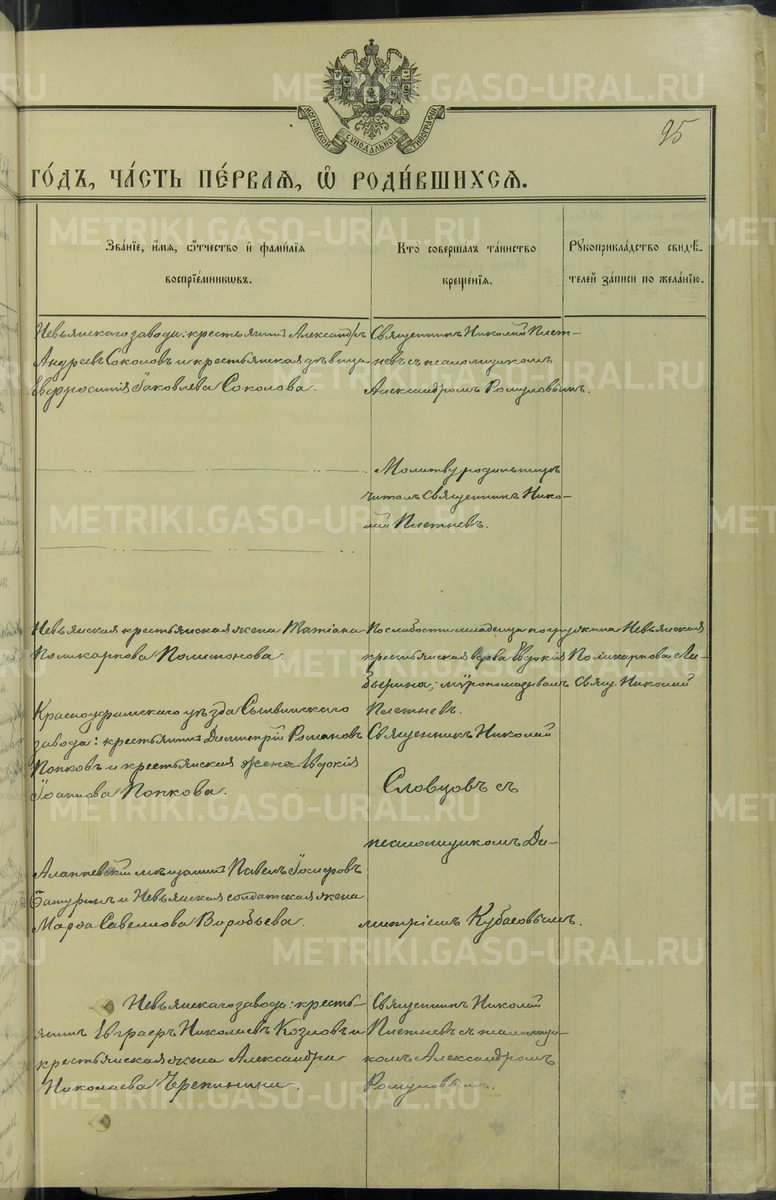 METRIKI.GASO-URAL.RU
МОСКОВСКОЙ СѴНОДАЛЬНОЙ ТИПОГРАФІИ
95
ГО́ДЪ, ЧА́СТЬ ПЕ́РВАѦ, Ѡ РОДИ́ВШИХСѦ.
Зва́нїе, и́мѧ, ѻ҆́тчество и҆ фами́лїѧ
воспрїе́мникѡвъ.
Кто̀ соверша́лъ та́инство
креще́нїѧ.
Рꙋкоприкла́дство свидѣ́-
телей за́писи по жела́нїю.
Невьянскаго завода: крестьянинъ Александръ
Андреевъ Соколовъ и крестьянская дѣвица
Евфросинія Іаковлева Соколова.
Священникъ Николай Плет-
невъ съ псаломщикомъ
Александромъ Ромуловымъ.
Молитву родильницѣ
читалъ Священникъ Нико-
лай Плетневъ.
Невьянская крестьянская жена Татіана
Поликарпова Полютова.
По слабости младенца погружена Невьянская
крестьянская вдова Евдокія Поликарпова
мѵропомазывалъ Свящ. Николай
Плетневъ.
Красноуфимскаго уѣзда Сылвинскаго
завода: крестьянинъ Димитрій Романовъ
Попковъ и крестьянская жена Евдокія
Іоаннова Попкова.
Священникъ Николай
Словцовъ съ
псаломщикомъ Ди-
митріемъ Кубасовымъ.
Алапаевскій мѣщанинъ Павелъ Іосифовъ
Батуринъ и Невьянская солдатская жена
Марѳа Савеллова Воробьева.
Невьянскаго завода: кресть-
янинъ Евграфъ Николаевъ Козловъ и
крестьянская жена Александра
Николаева Черепинина.
Священникъ Николай
Плетневъ съ псаломщи-
комъ Александромъ
Ромуловымъ.